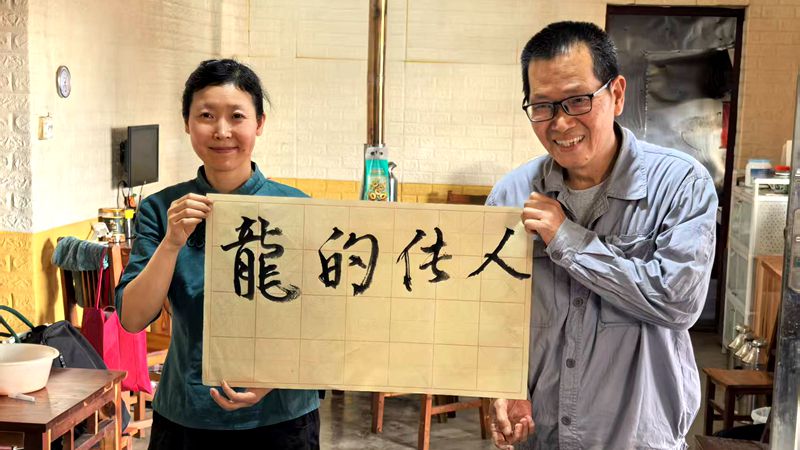 龍的传人